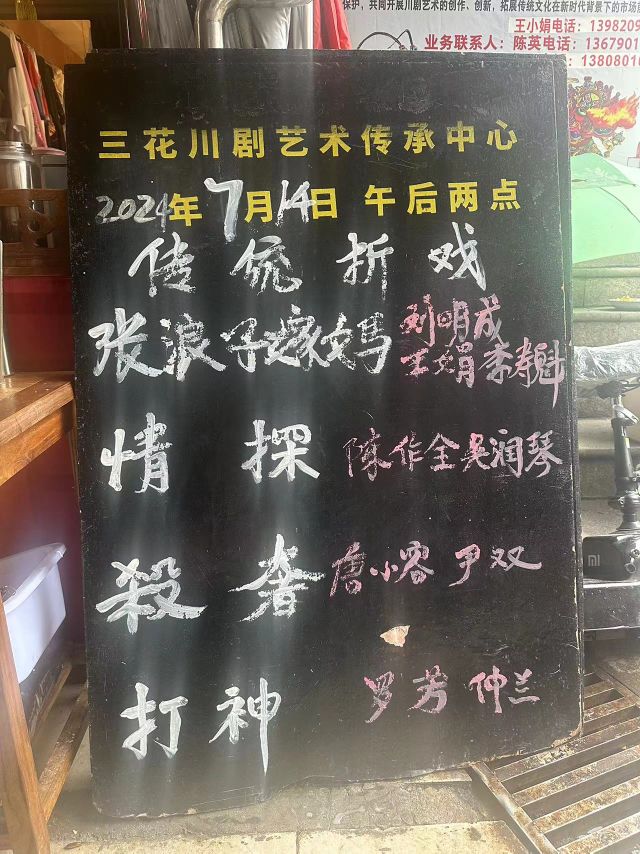 保护，共同开展川剧艺术的创作、创新，拓展传统文化在新时代背景下的市场
王小娟电话：1398209
业务联系人：陈英电话：1367901
13808010
三花川剧艺术传承中心
2024年7月14日 午后两点
传统折戏
张浪子嫁妈 刘明成
王娟李寿魁
情探 陈作全吴润琴
殺奢 唐小容 尹双
打神 罗芳 仲兰
mi